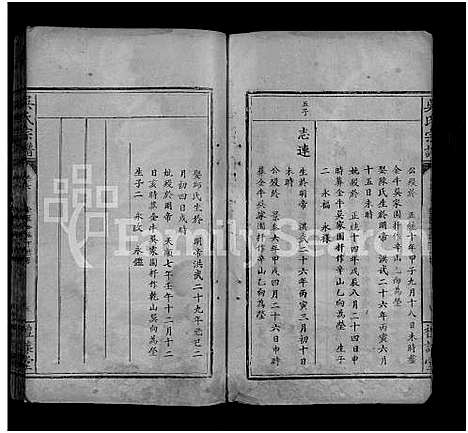 公殁於 正統十年甲子九月十八日未時葬
金牛吳家園杆作辛山乙向為塋
娶陳氏生於明帝 洪武二十六年丙寅六月
十五日未時
妣殁於 正統十四年戊辰八月二十四日申
時葬金牛吳家園杆作辛山乙向為塋 生子
二 永福 永祿
五子
志達
生於明帝 洪武二十六年丙寅三月初十日
未時
公殁於 景泰六年甲戌四月二十六日申時
葬金牛吳家園杆作辛山乙向為塋
娶邱氏生於 明帝洪武二十九年己二
月初四日戌時
妣殁於明帝 天順七年壬午十二月十二
日亥時葬金牛吳家園杆作乾山巽向為塋
生子二 永政 永鑑
吳氏宗譜
吳氏宗譜
FamilySearch